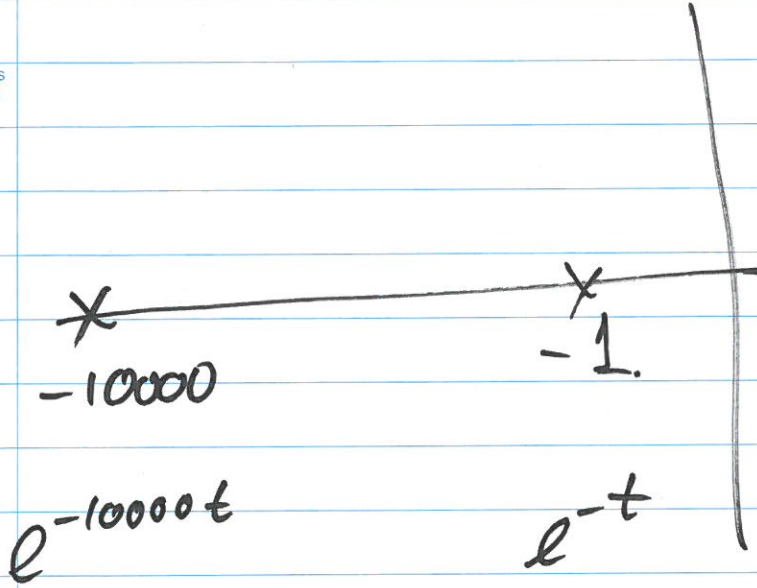 s
-10000
-1.
e^{-10000t}
e^{-t}